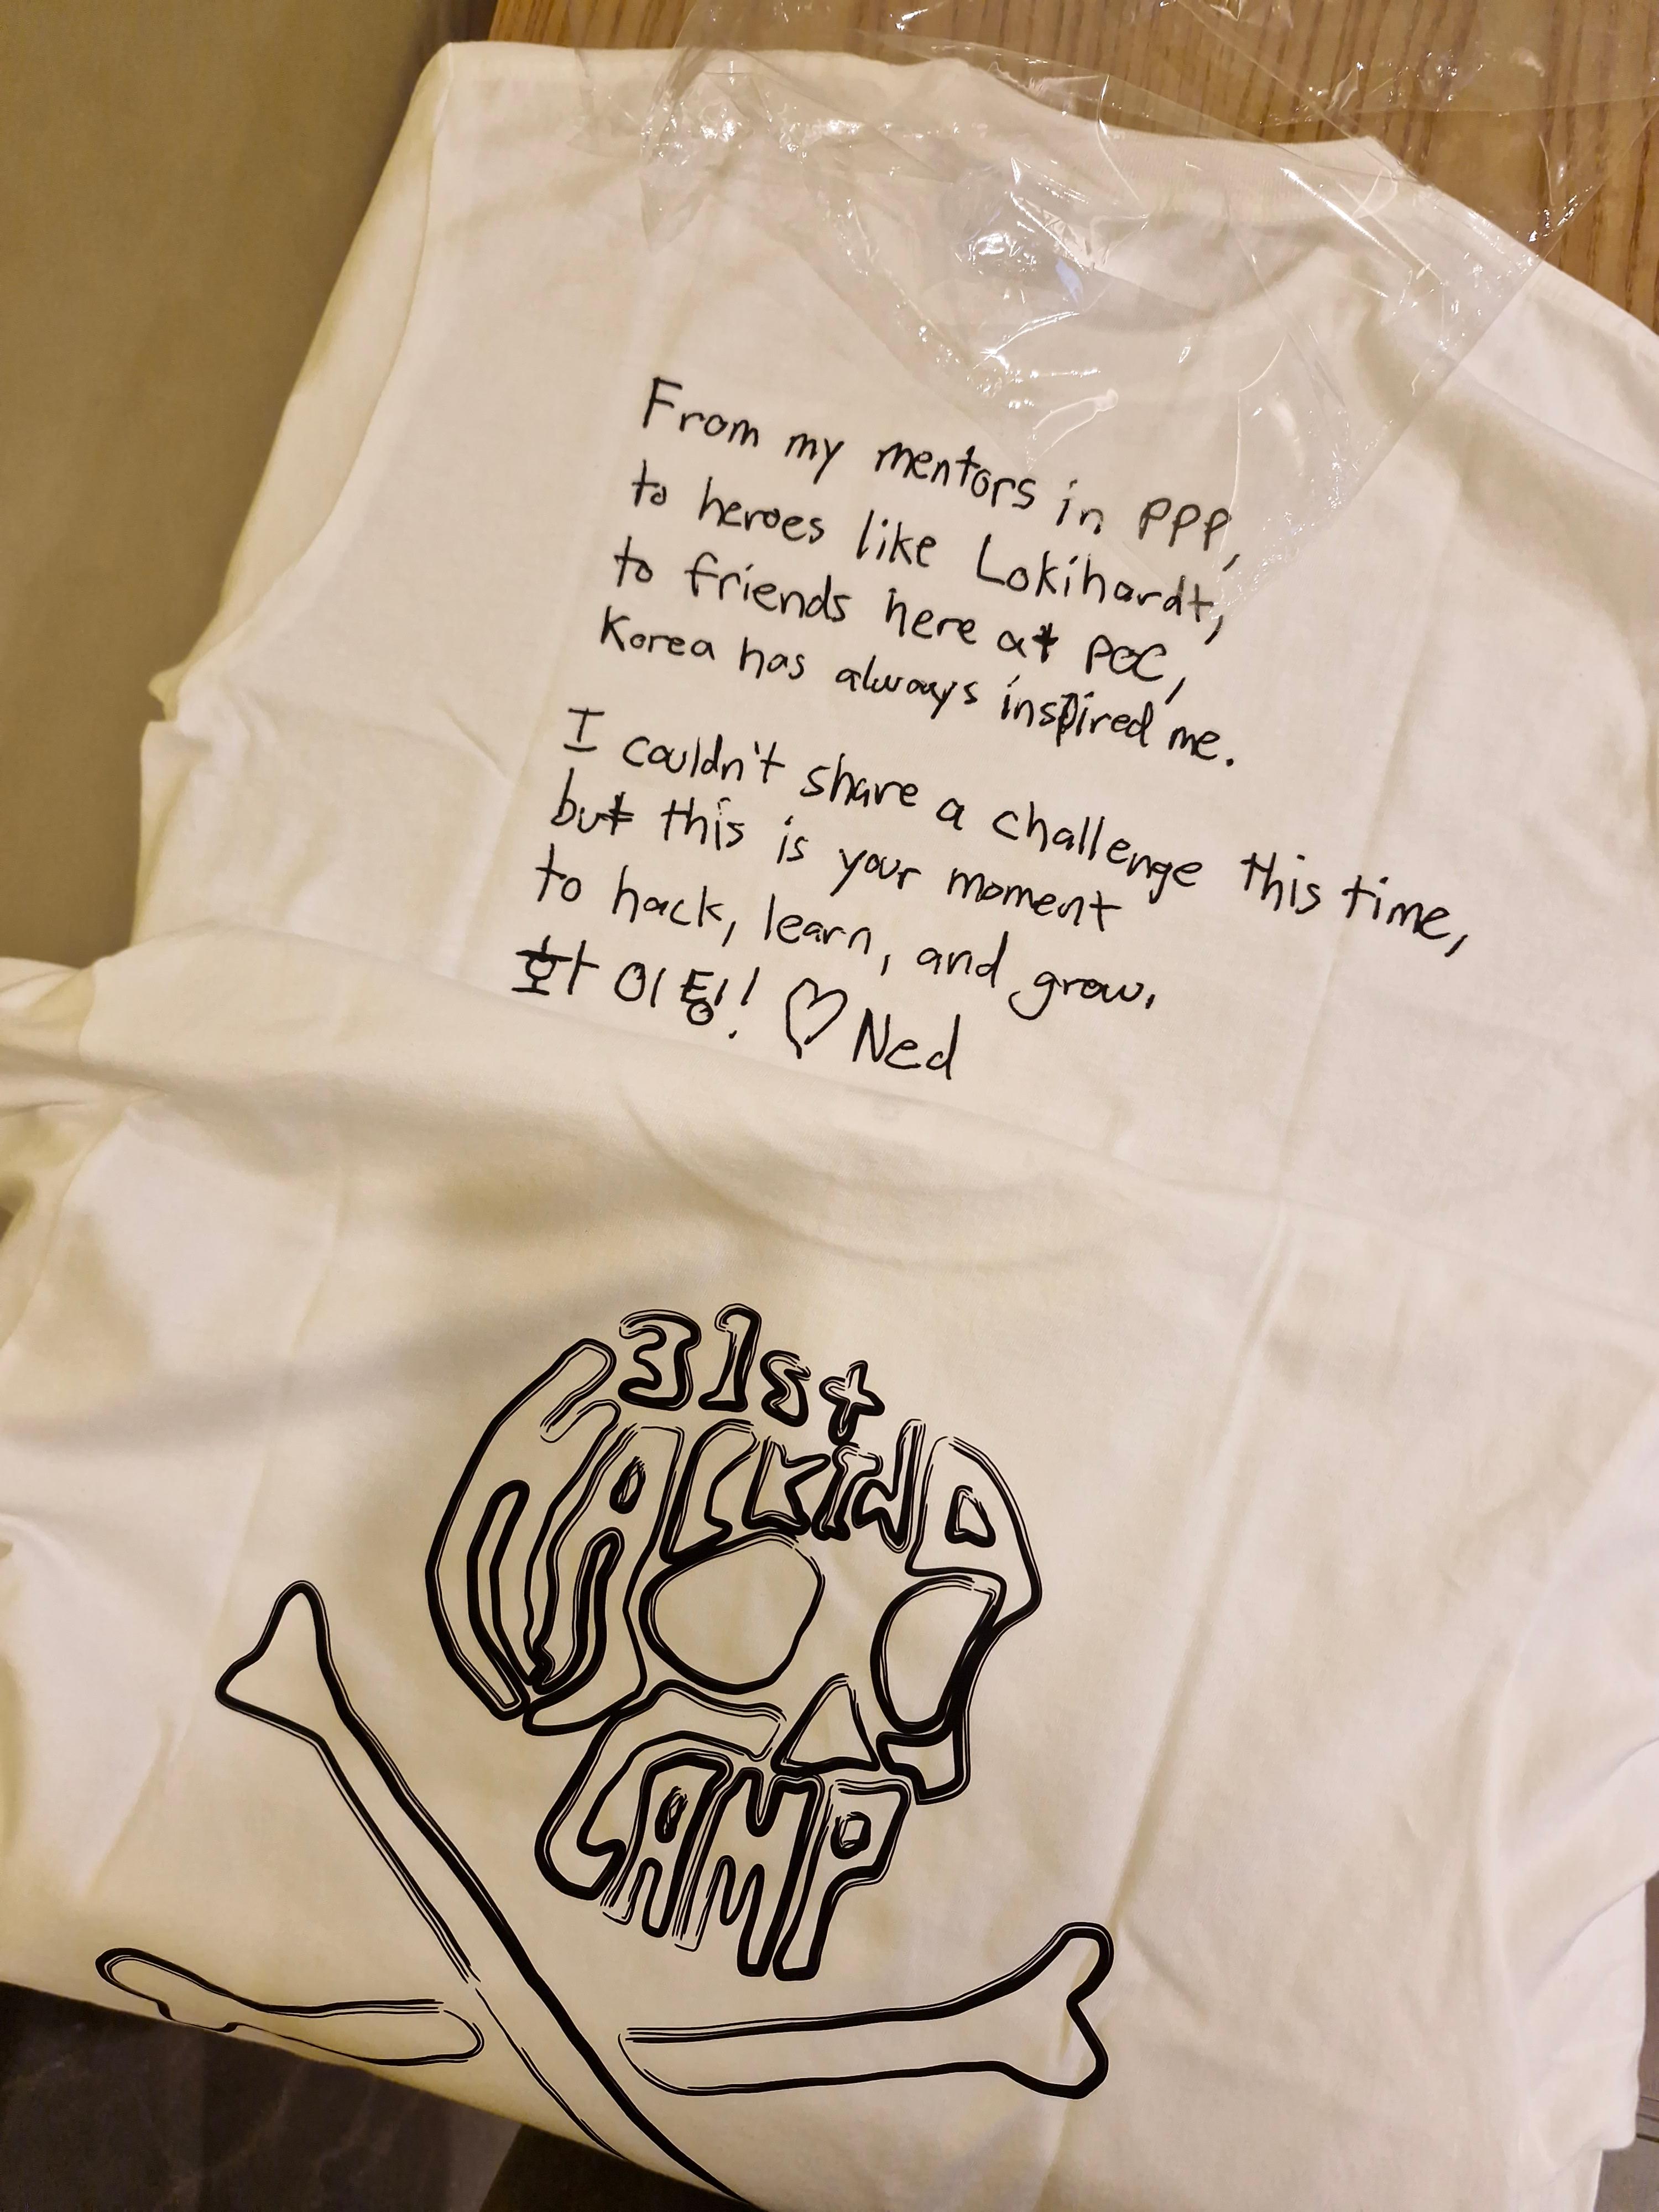 From my mentors in PPP,
to heroes like Lokihardt,
to friends here at POC,
Korea has always inspired me.
I couldn't share a challenge this time,
but this is your moment
to hack, learn, and grow.
화이팅! ♡ Ned
31st
HACKING
CAMP